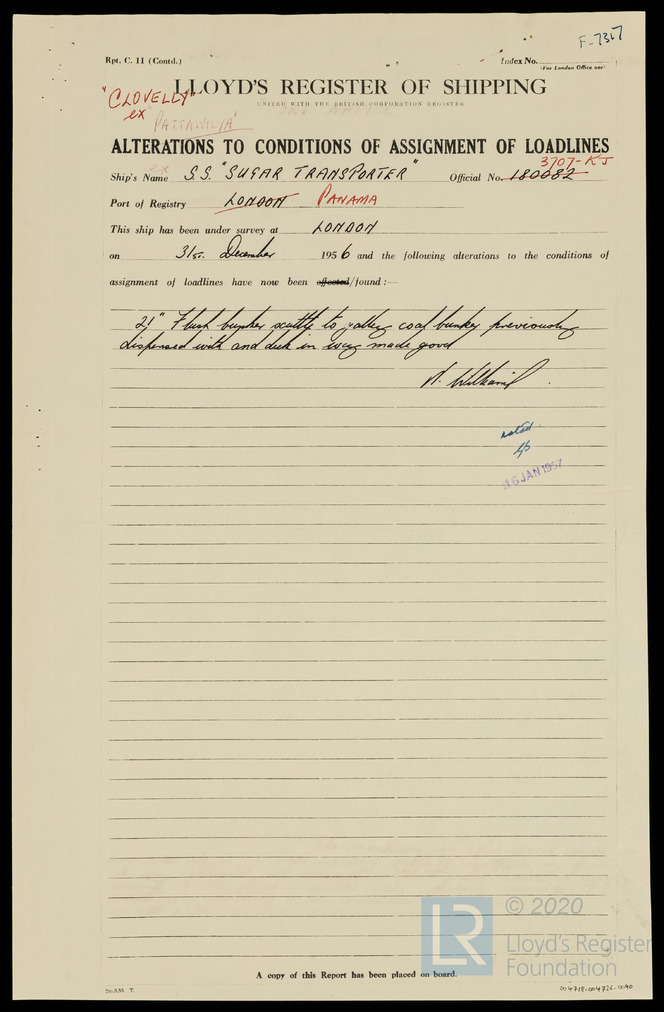 F-7317
Rpt. C. 11 (Contd.)
Index No.
(For London Office use)
LLOYD'S REGISTER OF SHIPPING
UNITED WITH THE BRITISH CORPORATION REGISTER
"CLOVELLY"
ex
PATTAWILYA
ALTERATIONS TO CONDITIONS OF ASSIGNMENT OF LOADLINES
3707-KJ
Ship's Name S.S. "SUGAR TRANSPORTER" Official No. 180082
Port of Registry LONDON PANAMA
This ship has been under survey at LONDON
on 31st. December 1956 and the following alterations to the conditions of
assignment of loadlines have now been effected/found:—
21" Flush bunker scuttle to galley coal bunker previously
dispensed with and deck in way made good
noted
16 JAN 1957
© 2020
LR
Lloyd's Register
Foundation
A copy of this Report has been placed on board.
004718-004726-0090